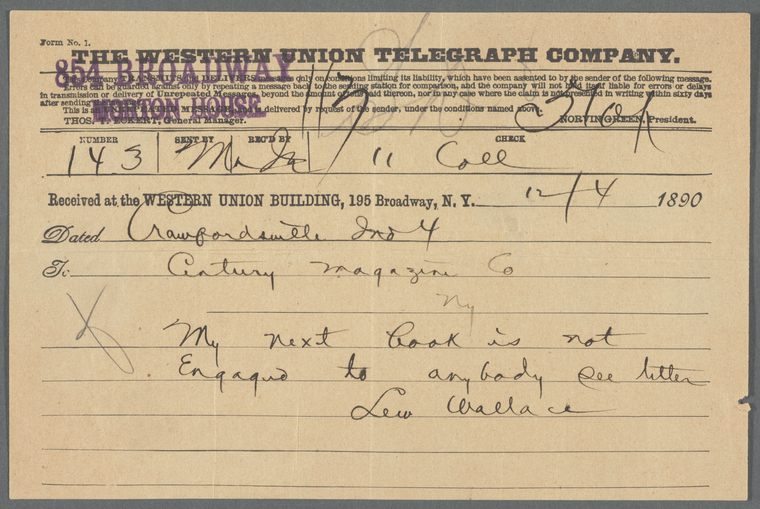 Form No. 1.
THE WESTERN UNION TELEGRAPH COMPANY.
854 BROADWAY
This Company TRANSMITS and DELIVERS messages only on conditions limiting its liability, which have been assented to by the sender of the following message.
Errors can be guarded against only by repeating a message back to the sending station for comparison, and the company will not hold itself liable for errors or delays
in transmission or delivery of Unrepeated Messages, beyond the amount of tolls paid thereon, nor in any case where the claim is not presented in writing within sixty days
after sending
MORTON HOUSE
This is an UNREPEATED MESSAGE and is delivered by request of the sender, under the conditions named above.
THOS. T. ECKERT, General Manager. NORVIN GREEN, President.
NUMBER SENT BY REC'D BY CHECK
143 11 Coll
Received at the WESTERN UNION BUILDING, 195 Broadway, N. Y. 12/4 1890
Dated Crawfordsville Ind 4
To Century Magazine Co
Ny
My next book is not
Engaged to anybody see letter
Lew Wallace